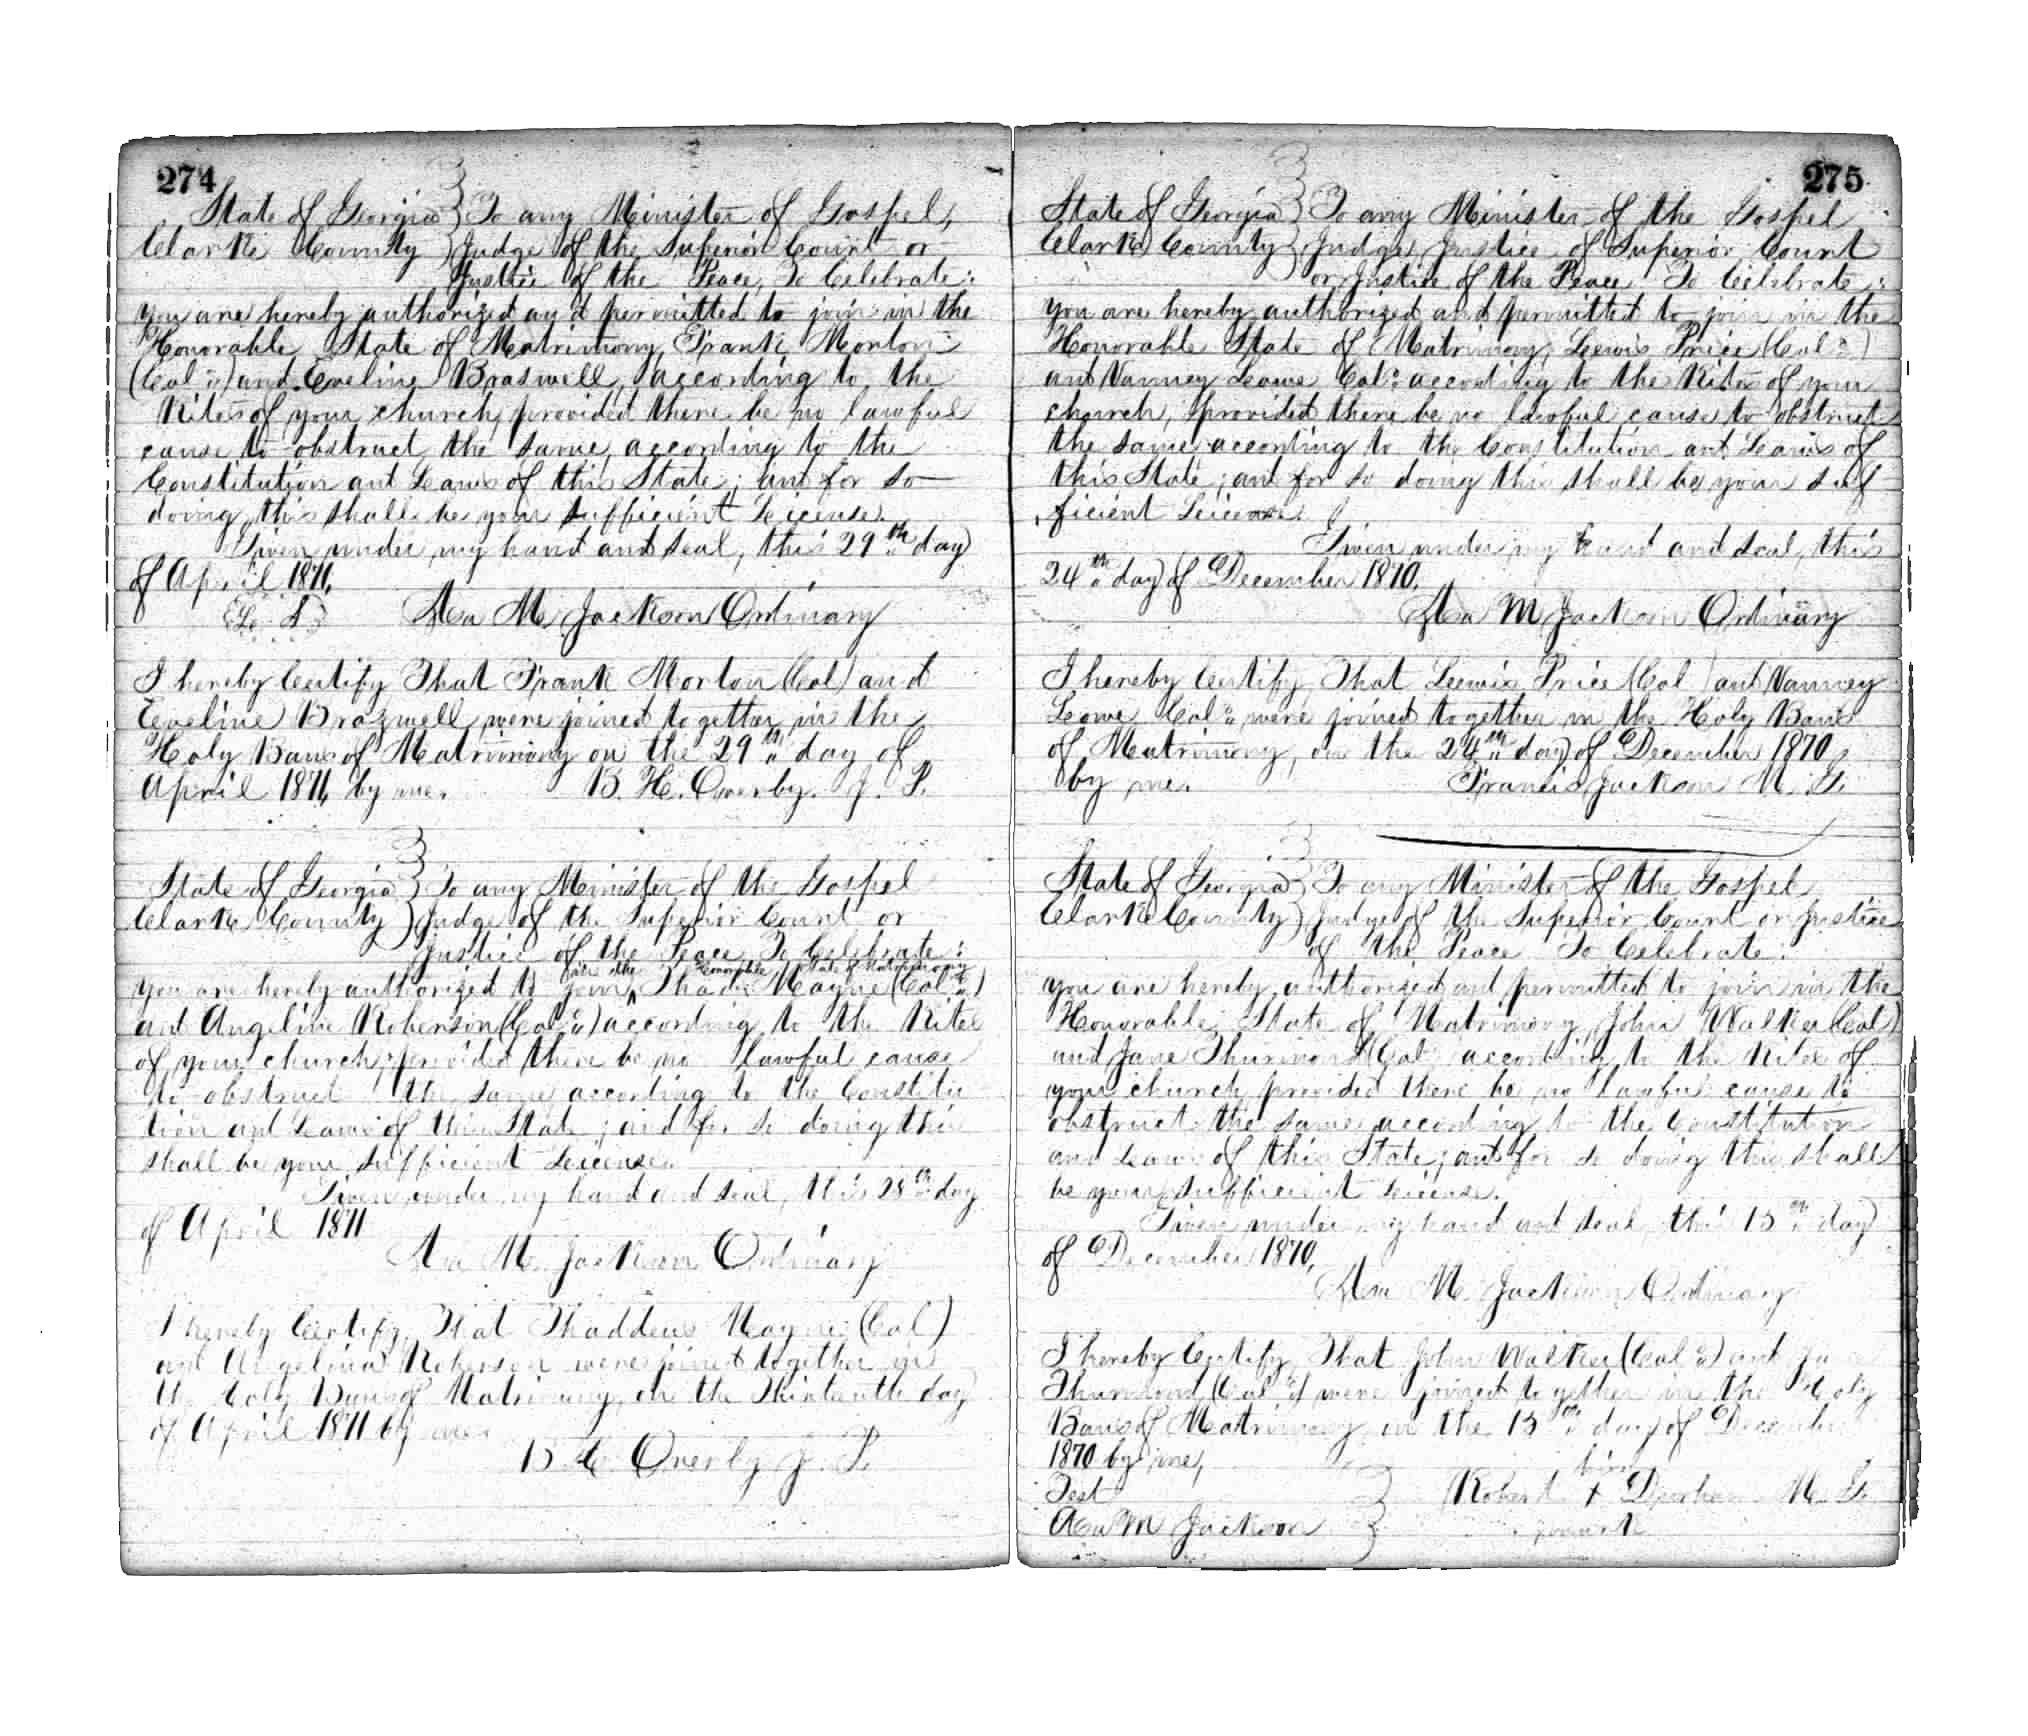 274
State of Georgia } To any Minister of Gospel,
Clarke County } Judge of the Superior Court or
Justice of the Peace, To Celebrate:
You are hereby authorized and permitted to join in the
Honorable State of Matrimony, Frank Morton
(Cold) and Eveline Braswell, according to the
Rites of your church, provided there be no lawful
cause to obstruct the same, according to the
Constitution and Laws of this State; and for so
doing this shall be your sufficient License.
Given under my hand and seal, this 29th day
of April 1871,
(L. S) Asa M. Jackson Ordinary
I hereby Certify That Frank Morton (Col) and
Eveline Brazwell, were joined together in the
Holy Bans of Matrimony on the 29th day of
April 1871, by me. B. H. Overby. J. P.
State of Georgia } To any Minister of the Gospel
Clarke County } Judge of the Superior Court or
Justice of the Peace, To Celebrate:
in the Honorable State of Matrimony
You are hereby authorized to join ^ Thads Mayne (Cold)
and Angeline Roberson (Cold) according to the Rites
of your church; provided there be no lawful cause
to obstruct the same according to the Constitu
tion and Laws of this State; and for so doing this
shall be your sufficient License.
Given under my hand and seal, this 28th day
of April 1871
Asa M. Jackson Ordinary
I hereby Certify, That Thaddeus Mayne (Col)
and Angelina Roberson were joined together in
the holy Bans of Matrimony, on the Thirteenth day
of April 1871 by me.
Overby J. P.
275
State of Georgia } To any Minister of the Gospel
Clarke County } Judge, Justice of Superior Court
or Justice of the Peace To Celebrate:
You are hereby authorized and permitted to join in the
Honorable State of Matrimony, Lewis Price (Cold)
and Nanney Lowe Cold according to the Rites of your
church, provided there be no lawful cause to obstruct
the same, according to the Constitution and Laws of
this State; and for so doing this shall be your suf
ficient License.
Given under my hand and seal, this
24th day of December 1870.
Asa M Jackson Ordinary
I hereby Certify, That Lewis Price (Col) and Nanney
Lowe Cold were joined together in the Holy Bans
of Matrimony, on the 24th day of December 1870,
by me. Francis Jackson M. G.
State of Georgia } To any Minister of the Gospel
Clarke County } Judge of the Superior Court or Justice
of the Peace To Celebrate:
You are hereby authorized and permitted to join in the
Honorable State of Matrimony, John Walker (Col)
and Jane Thurmond (Col according to the Rites of
your church, provided there be no lawful cause to
obstruct the same, according to the Constitution
and Laws of this State; and for so doing this shall
be your sufficient License.
Given under my hand and seal, this 15th day
of December 1870,
Asa M. Jackson Ordinary
I hereby Certify, That John Walker (Cold) and
Thurmond (Cold) were joined together in the Holy
Bans of Matrimony, on the 15th day of December
1870 by me,
his
Test } Robert + M. G.
Asa M Jackson } mark